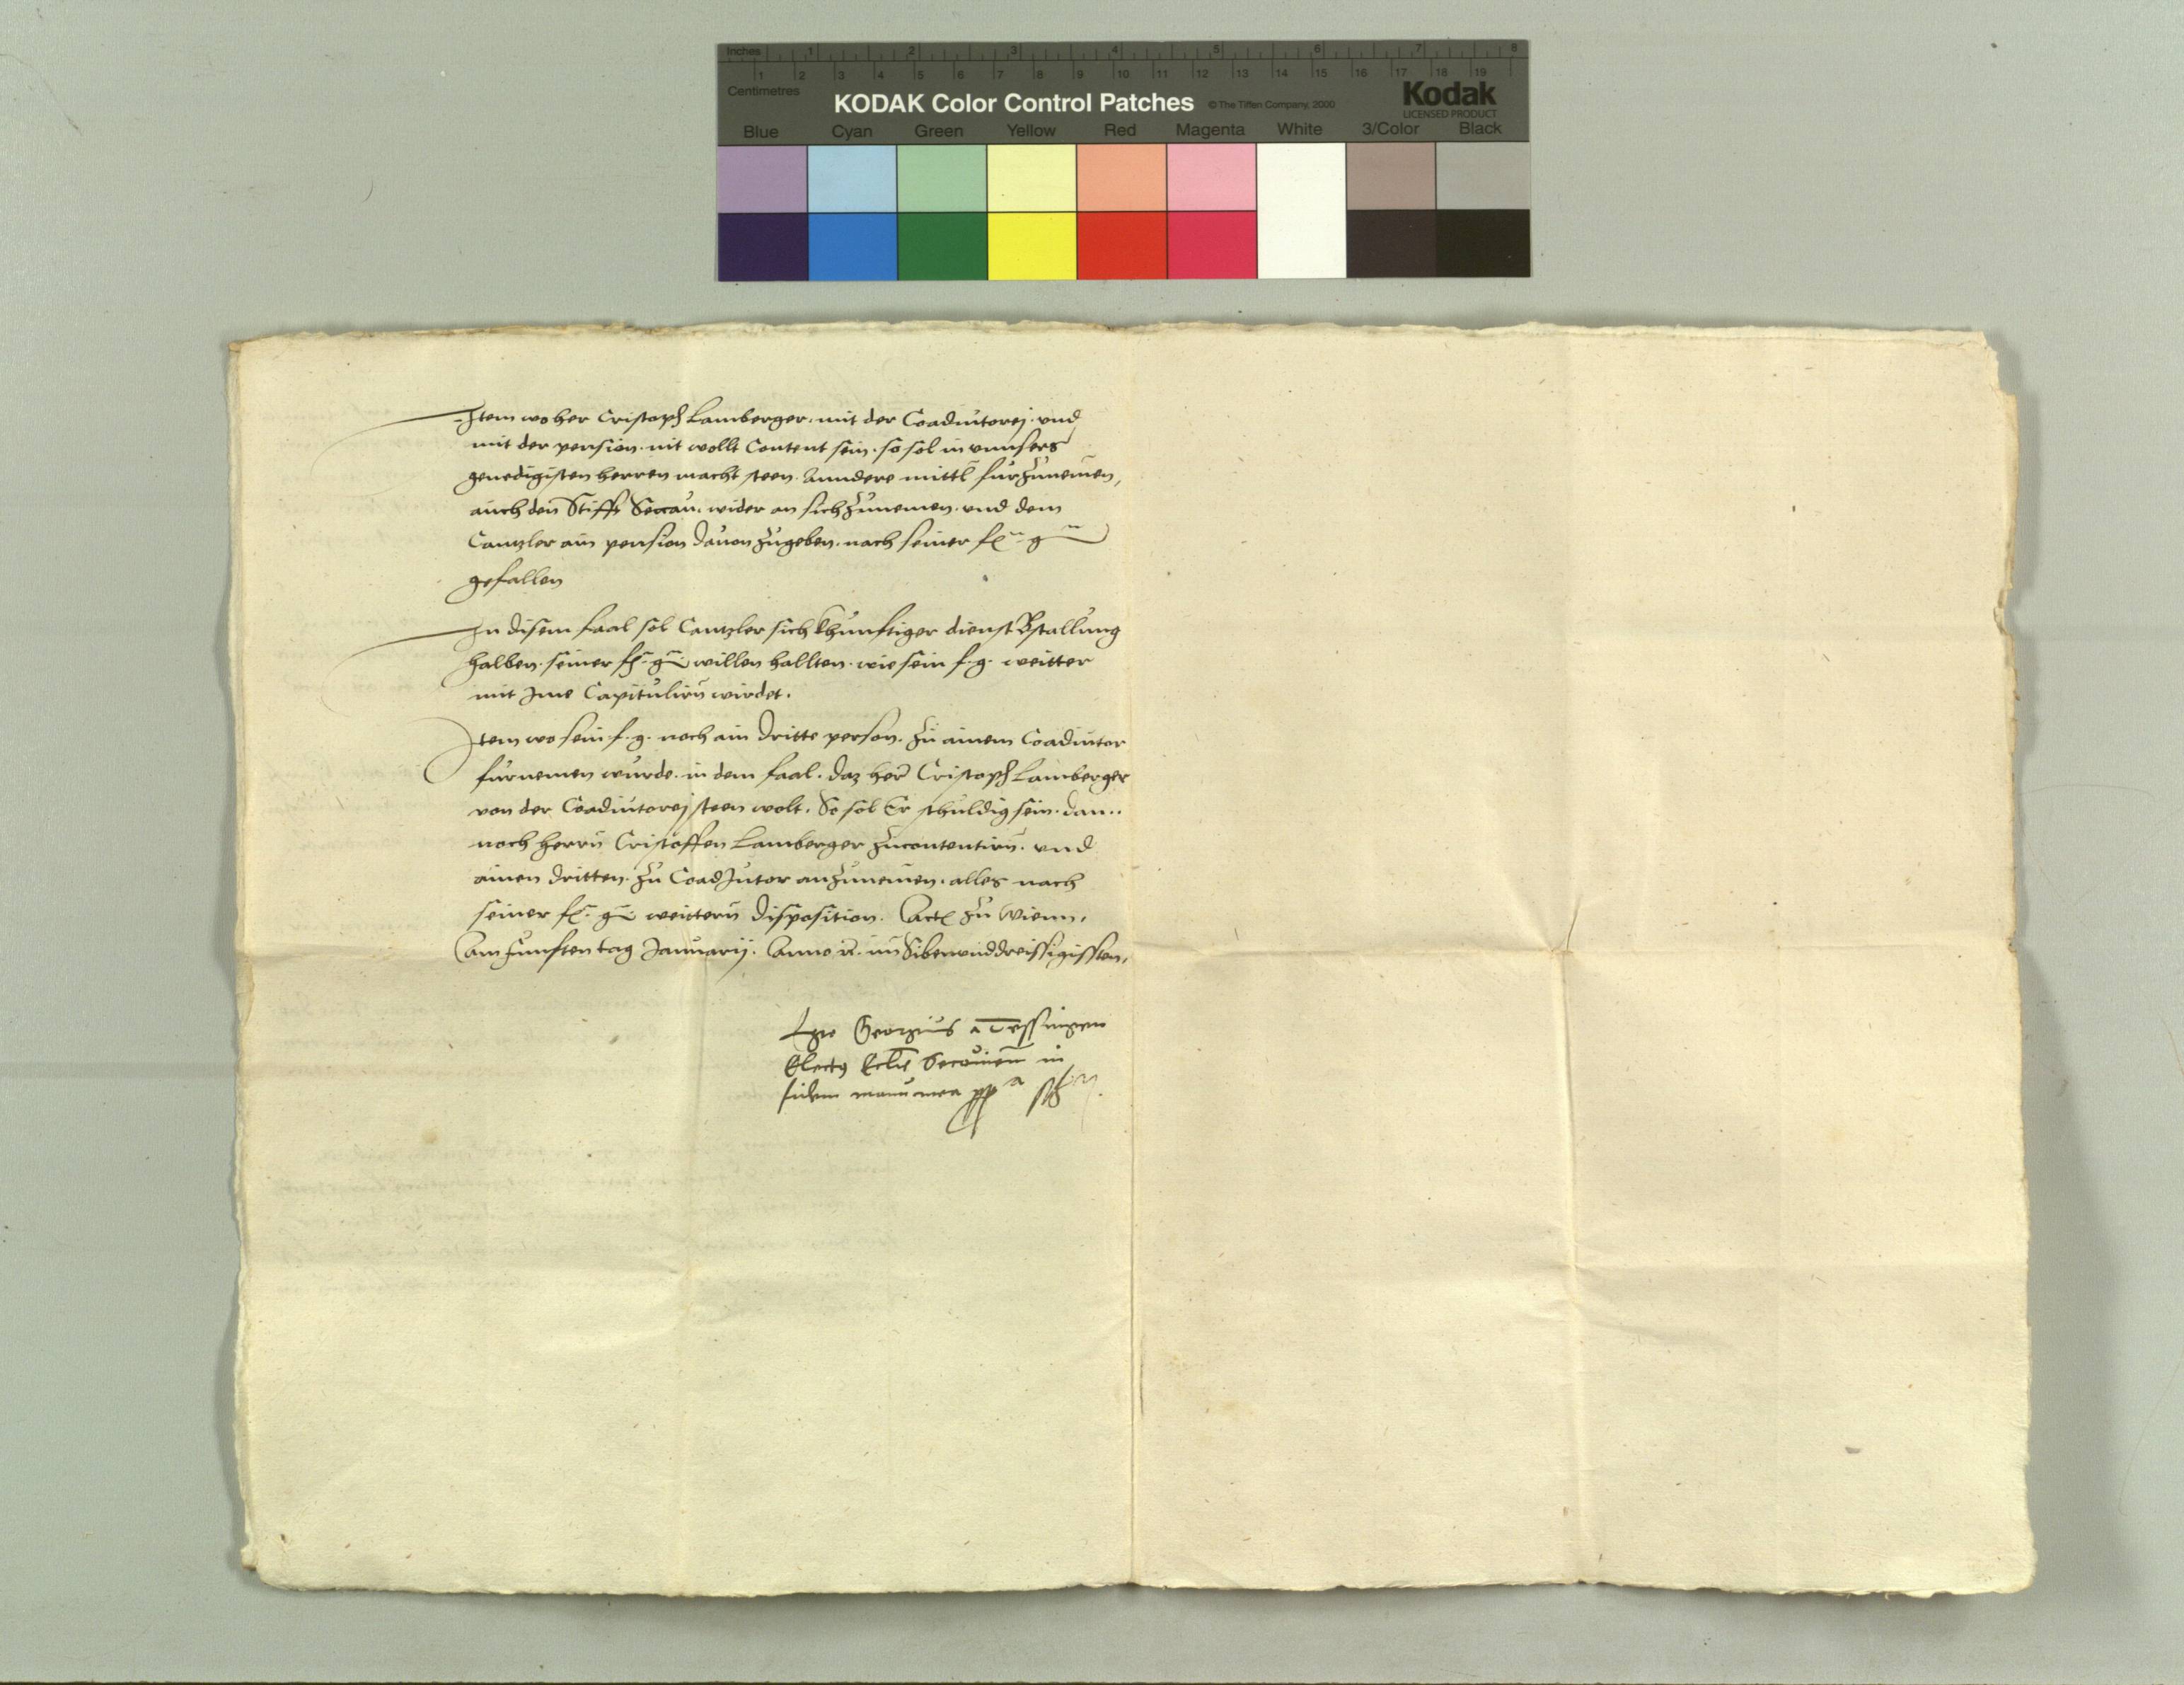 Inches 1 2 3 4 5 6 7 8
1 2 3 4 5 6 7 8 9 10 11 12 13 14 15 16 17 18 19
Centimetres
KODAK Color Control Patches © The Tiffen Company, 2000 Kodak
LICENSED PRODUCT
Blue Cyan Green Yellow Red Magenta White 3/Color Black
Item wo her Cristoph Lamberger. mit der Coadiutorej. vnd
mit der pension. nit wollt Content sein. so sol in vnnsers
genedigisten herren macht steen. Anndere mittl furzunemen,
auch den Stifft Seccau. wider an sich zunemen. vnd dem
Cantzler ain pension dauon zugeben. nach seiner f g
gefallen
In disem faal sol Cantzler sich khunfftiger dienst Bstallung
halben. seiner f g willen hallten. wie sein f. g. weitter
mit Ime Capitulirn wirdet.
Item wo sein f. g. noch ain dritte person. zu ainem Coadiutor
furnemen wurde. in dem faal. daz her Cristoph Lamberger
von der Coadiutorej steen wolt. So sol Er schuldig sein. dan..
noch herrn Cristoffen Lamberger zucontentirn. vnd
ainen dritten. zu CoadJutor anzunemen. alles nach
seiner f g weittern disposition. Act zu Wienn.
Am funften tag Januarij. Anno im Sibenunddreissigissten.
Ego Georgius a Tessingen
Electus Eccl Secouien in
fidem manu mea pp sst